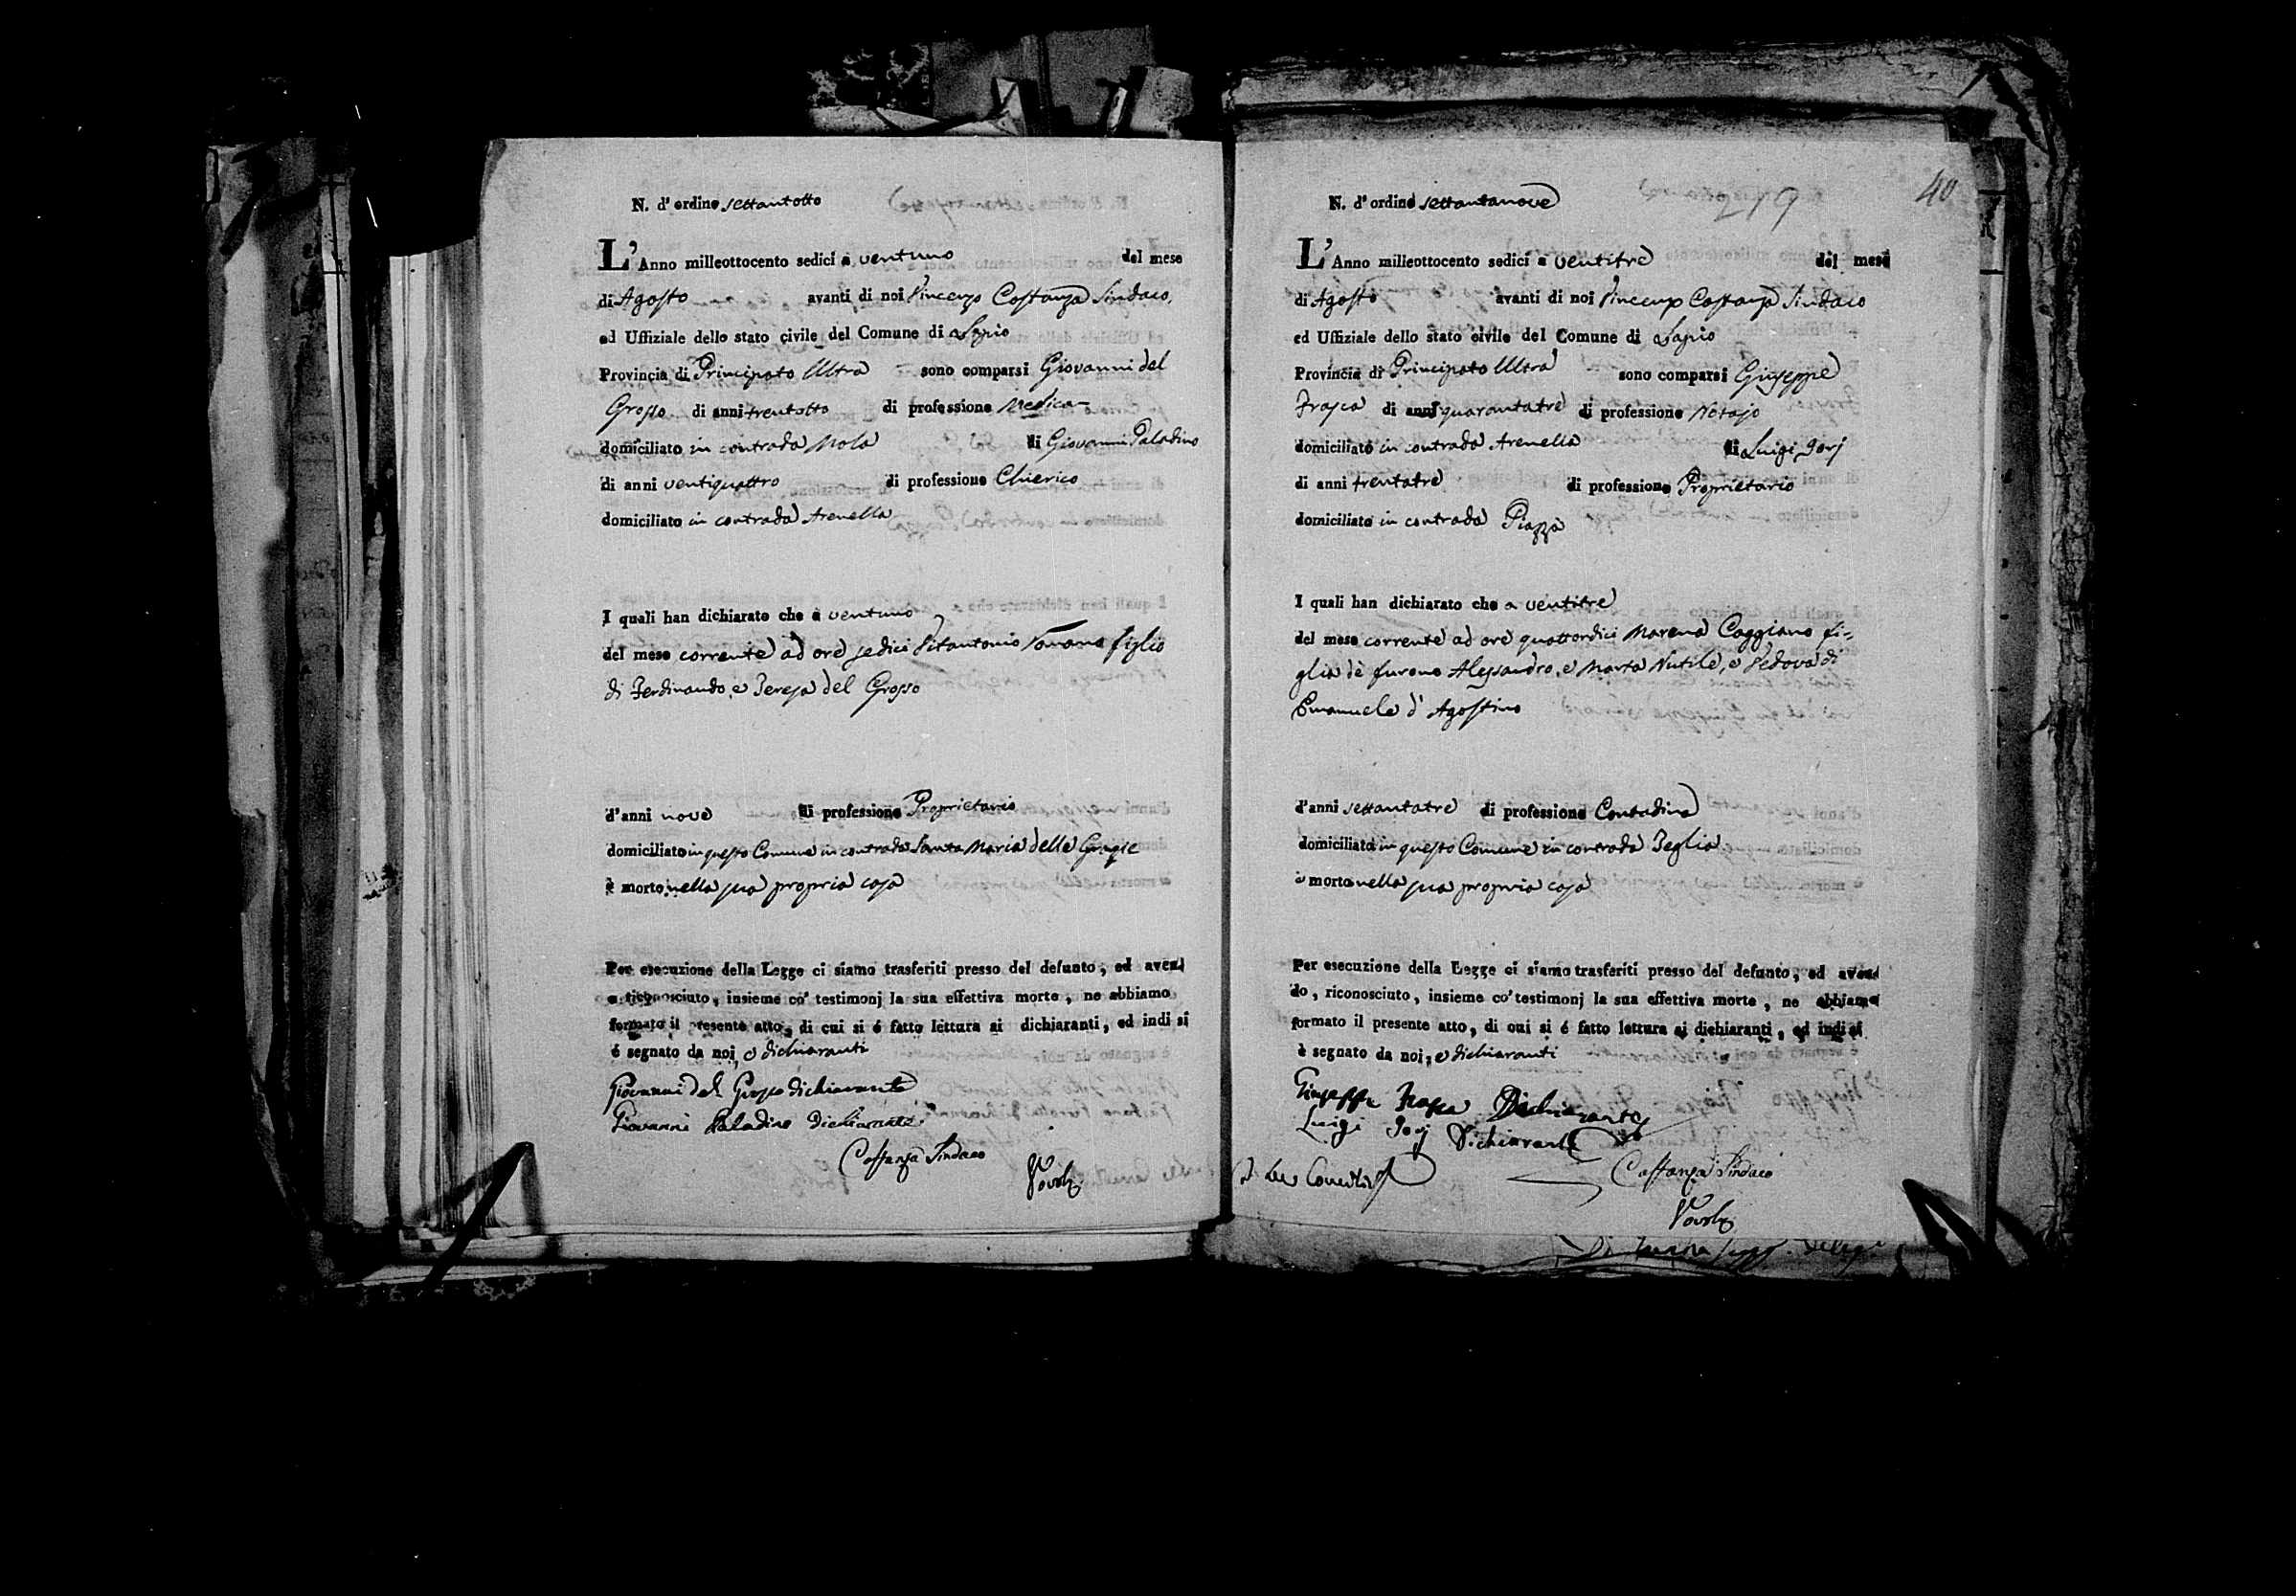 N. d'ordine settantotto
L'Anno milleottocento sedici a ventuno del mese
di Agosto avanti di noi Vincenzo Costanza Sindaco,
ed Uffiziale dello stato civile del Comune di Lapio
Provincia di Principato Ultra sono comparsi Giovanni del
Grosso di anni trentotto di professione Medico
domiciliato in contrada Mola di Giovanni Paladino
di anni ventiquattro di professione Chierico
domiciliato in contrada Arenella
I quali han dichiarato che a ventuno
del mese corrente ad ore sedici Vitantonio figlio
di Ferdinando, e Teresa del Grosso
d'anni nove di professione Proprietario
domiciliato in questo Comune in contrada Santa Maria delle Grazie
è morto nella sua propria casa
Per esecuzione della Legge ci siamo trasferiti presso del defunto, ed aven
o riconosciuto, insieme co' testimonj la sua effettiva morte, ne abbiamo
formato il presente atto, di cui si é fatto lettura ai dichiaranti, ed indi si
é segnato da noi, e dichiaranti
Giovanni del Grosso dichiarante
Giovanni Paladino Dichiarante
Costanza Sindaco
40
N. d'ordine settantanove 79
L'Anno milleottocento sedici a ventitre del mese
di Agosto avanti di noi Vincenzo Costanza Sindaco
ed Uffiziale dello stato civile del Comune di Lapio
Provincia di Principato Ultra sono comparsi Giuseppe
Frasca di anni quarantatre di professione Notajo
domiciliato in contrada Arenella di Luigi Jorj
di anni trentatre di professione Proprietario
domiciliato in contrada Piazza
I quali han dichiarato che a ventitre
del mese corrente ad ore quattordici Marena Caggiano fi-
glia dè furono Alessandro, e Marta Nutile, e Vedova di
Emanuele d'Agostino
d'anni settantatre di professione Contadina
domiciliato in questo Comune in contrada Teglia
è morto nella sua propria casa
Per esecuzione della Legge ci siamo trasferiti presso del defunto, ed aven
do, riconosciuto, insieme co' testimonj la sua effettiva morte, ne abbiamo
formato il presente atto, di cui si é fatto lettura ai dichiaranti, ed indi si
è segnato da noi, e dichiaranti
Giuseppe Frasca Dichiarante
Luigi Jorj Dichiarante
Costanza Sindaco